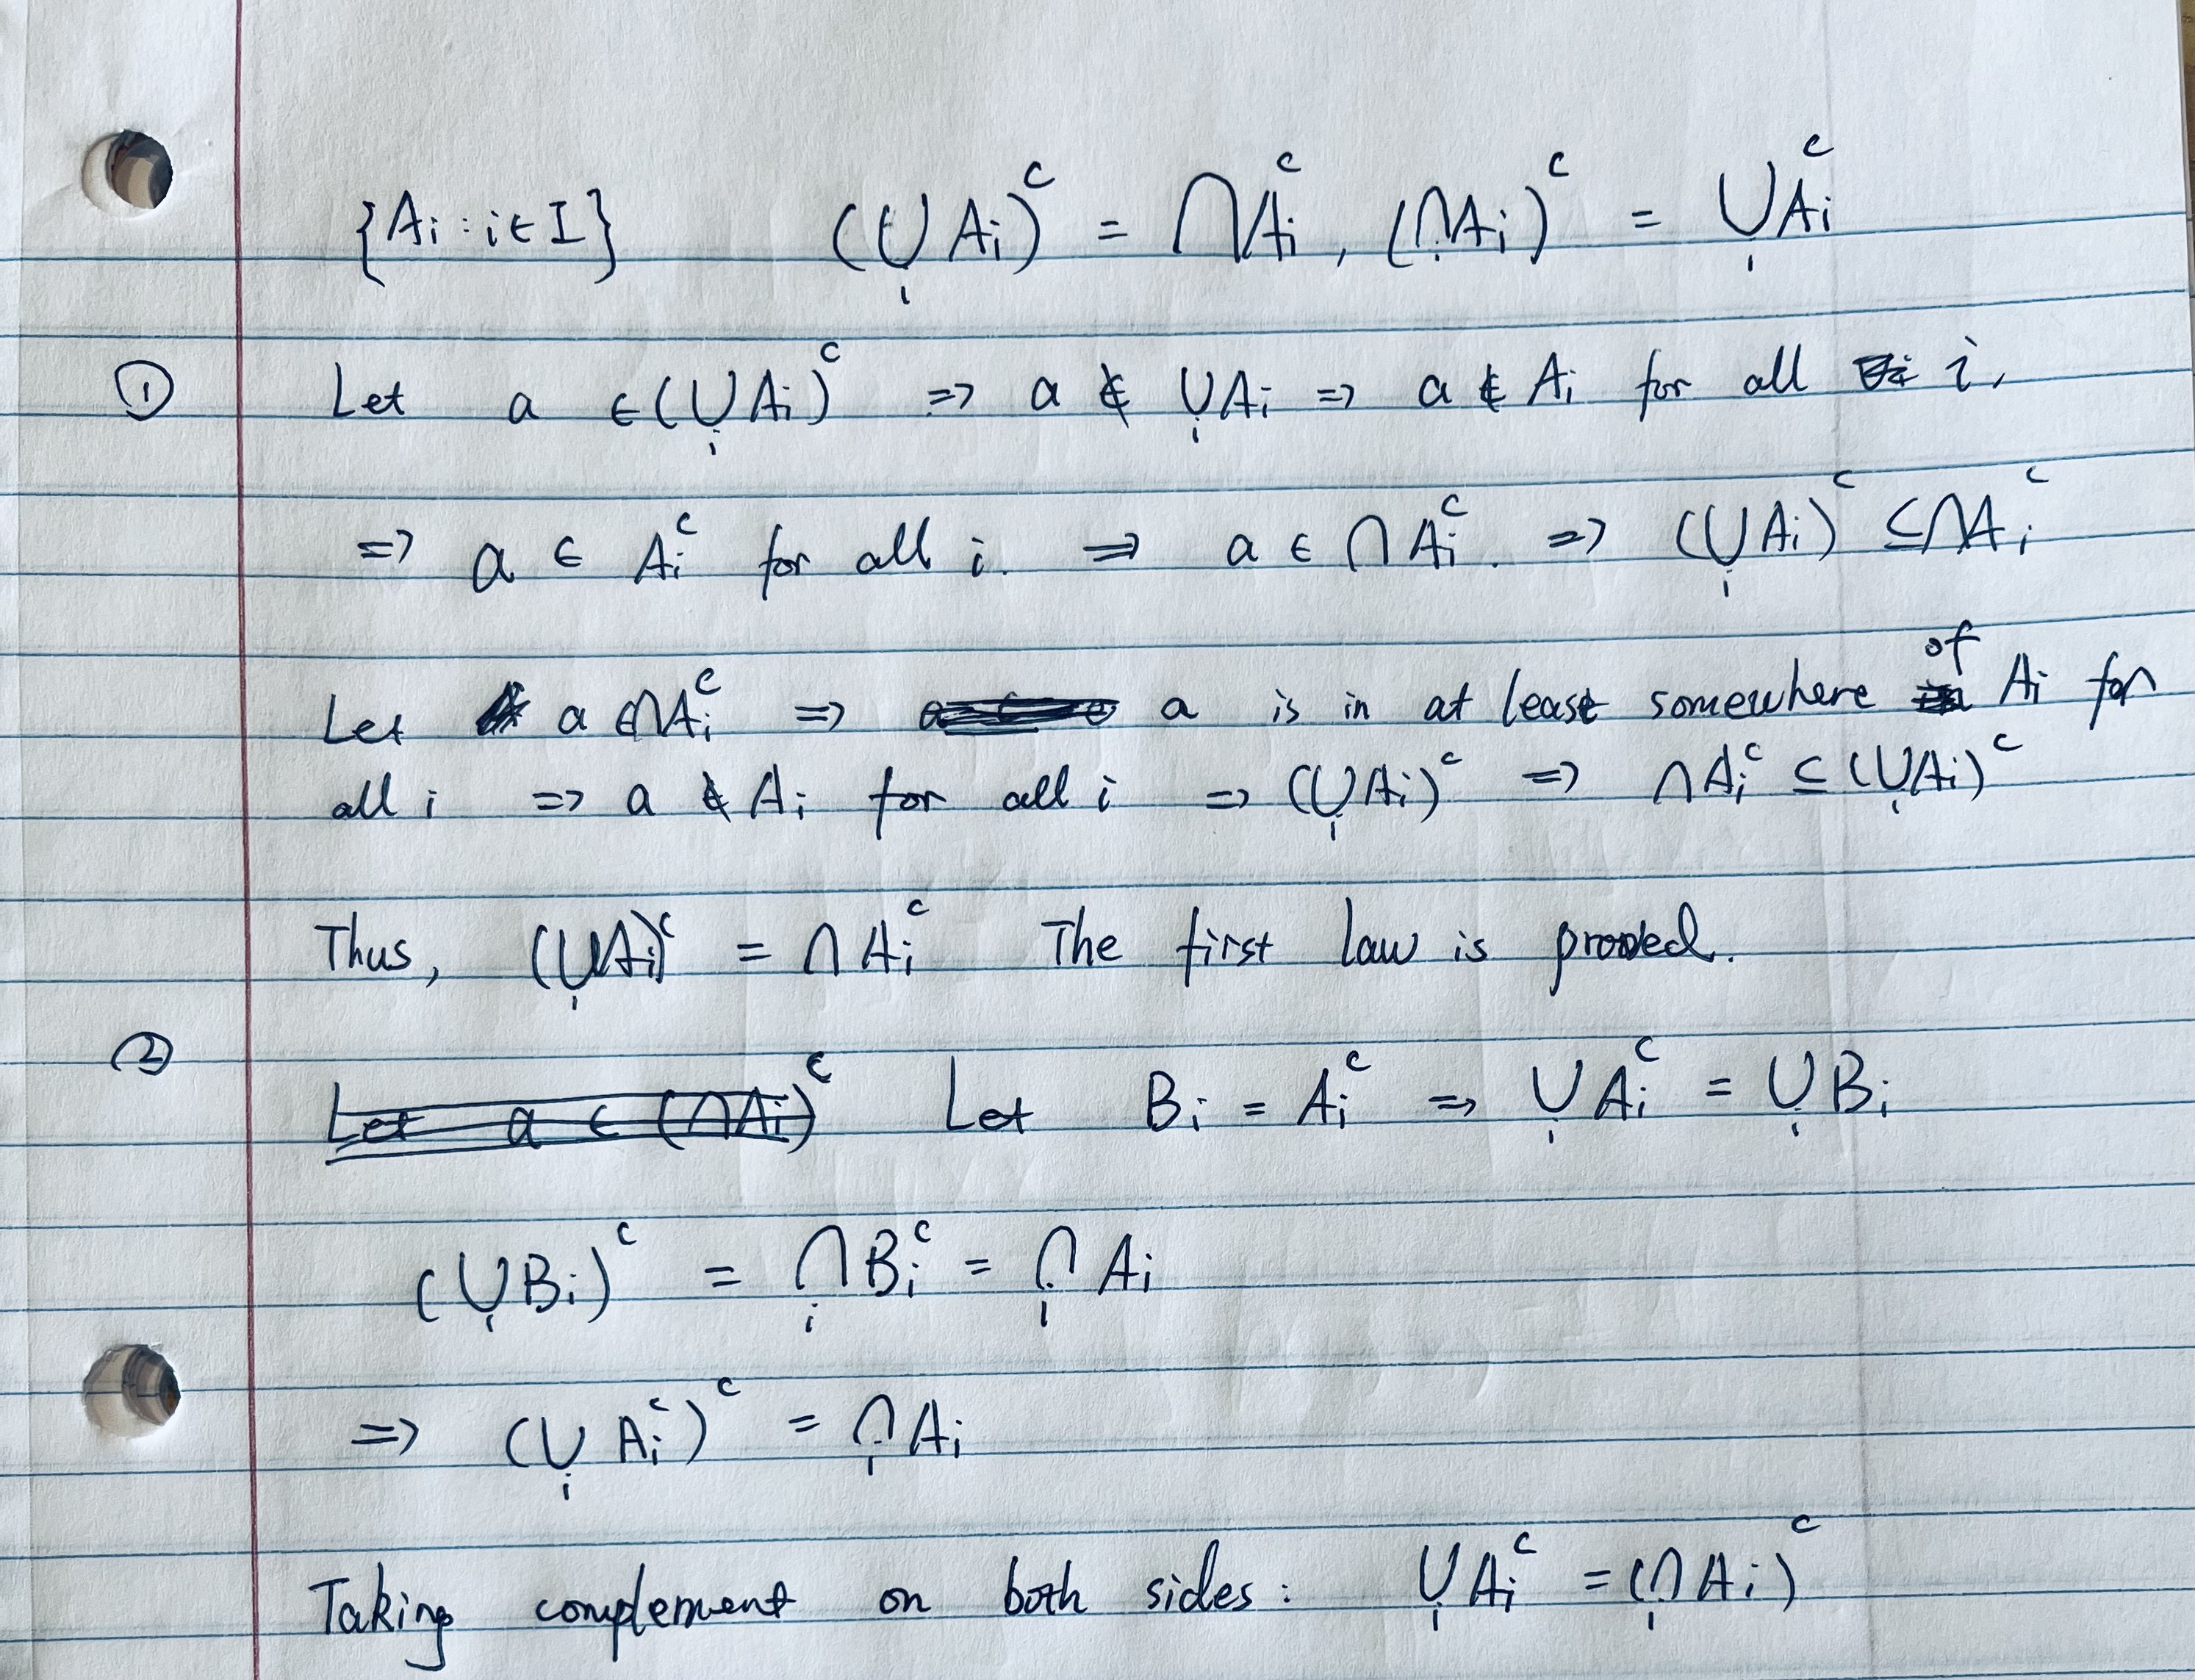 {Aᵢ : i ∈ I} (⋃ᵢ Aᵢ)ᶜ = ⋂Aᵢᶜ, (⋂ᵢAᵢ)ᶜ = ⋃ᵢAᵢᶜ
① Let a ∈ (⋃ᵢ Aᵢ)ᶜ => a ∉ ⋃ᵢAᵢ => a ∉ Aᵢ for all i,
=> a ∈ Aᵢᶜ for all i. => a ∈ ⋂Aᵢᶜ. => (⋃ᵢAᵢ)ᶜ ⊆ ⋂Aᵢᶜ
Let a ∈ ⋂Aᵢᶜ => a is in at least somewhere of Aᵢ for
all i => a ∉ Aᵢ for all i => (⋃ᵢAᵢ)ᶜ => ⋂Aᵢᶜ ⊆ (⋃ᵢAᵢ)ᶜ
Thus, (⋃ᵢAᵢ)ᶜ = ⋂Aᵢᶜ The first law is proved.
② Let a ∈ (⋂Aᵢ)ᶜ Let Bᵢ = Aᵢᶜ => ⋃ᵢAᵢᶜ = ⋃ᵢBᵢ
(⋃ᵢBᵢ)ᶜ = ⋂ᵢBᵢᶜ = ⋂ᵢ Aᵢ
=> (⋃ᵢ Aᵢᶜ)ᶜ = ⋂ᵢAᵢ
Taking complement on both sides: ⋃ᵢAᵢᶜ = (⋂ᵢAᵢ)ᶜ